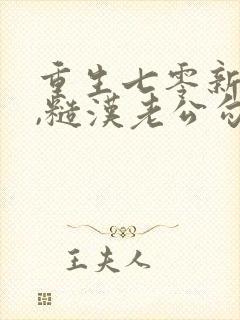 重生七零新
,糙汉老公勾
王夫人